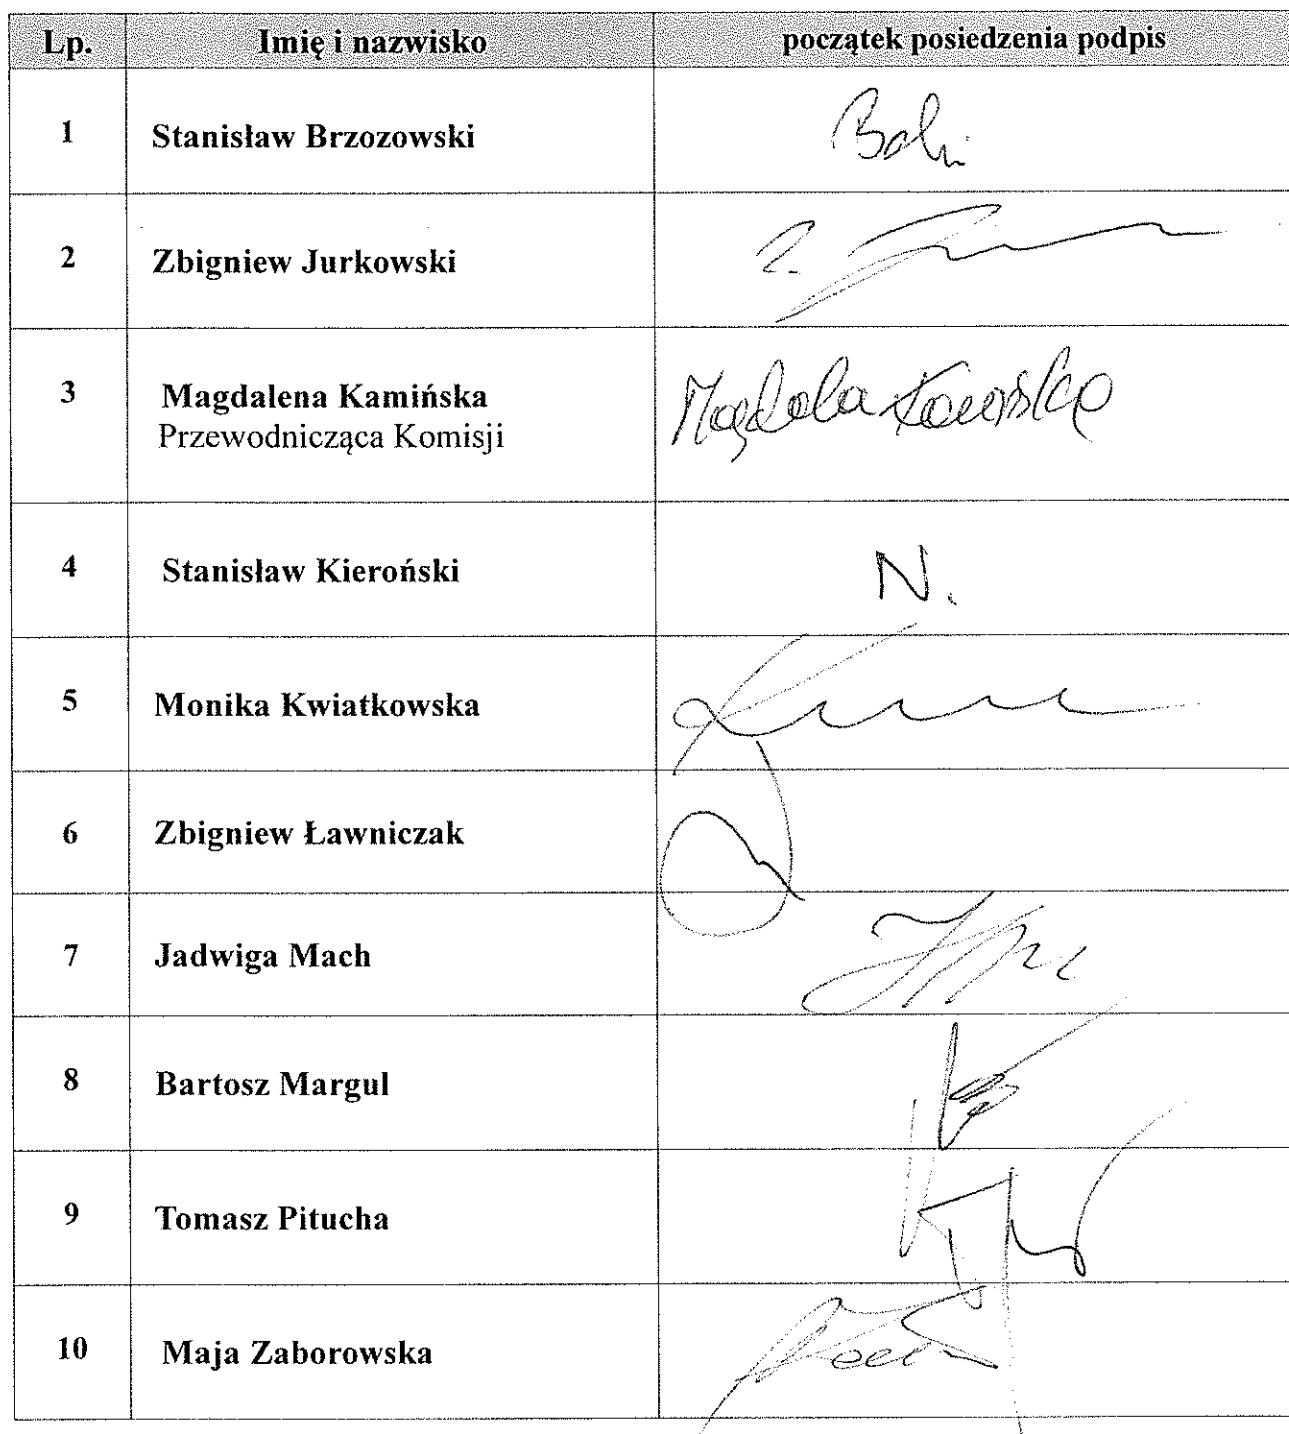 Lp. Imię i nazwisko początek posiedzenia podpis
1 Stanisław Brzozowski
2 Zbigniew Jurkowski
3 Magdalena Kamińska
Przewodnicząca Komisji
4 Stanisław Kieroński N.
5 Monika Kwiatkowska
6 Zbigniew Ławniczak
7 Jadwiga Mach
8 Bartosz Margul
9 Tomasz Pitucha
10 Maja Zaborowska